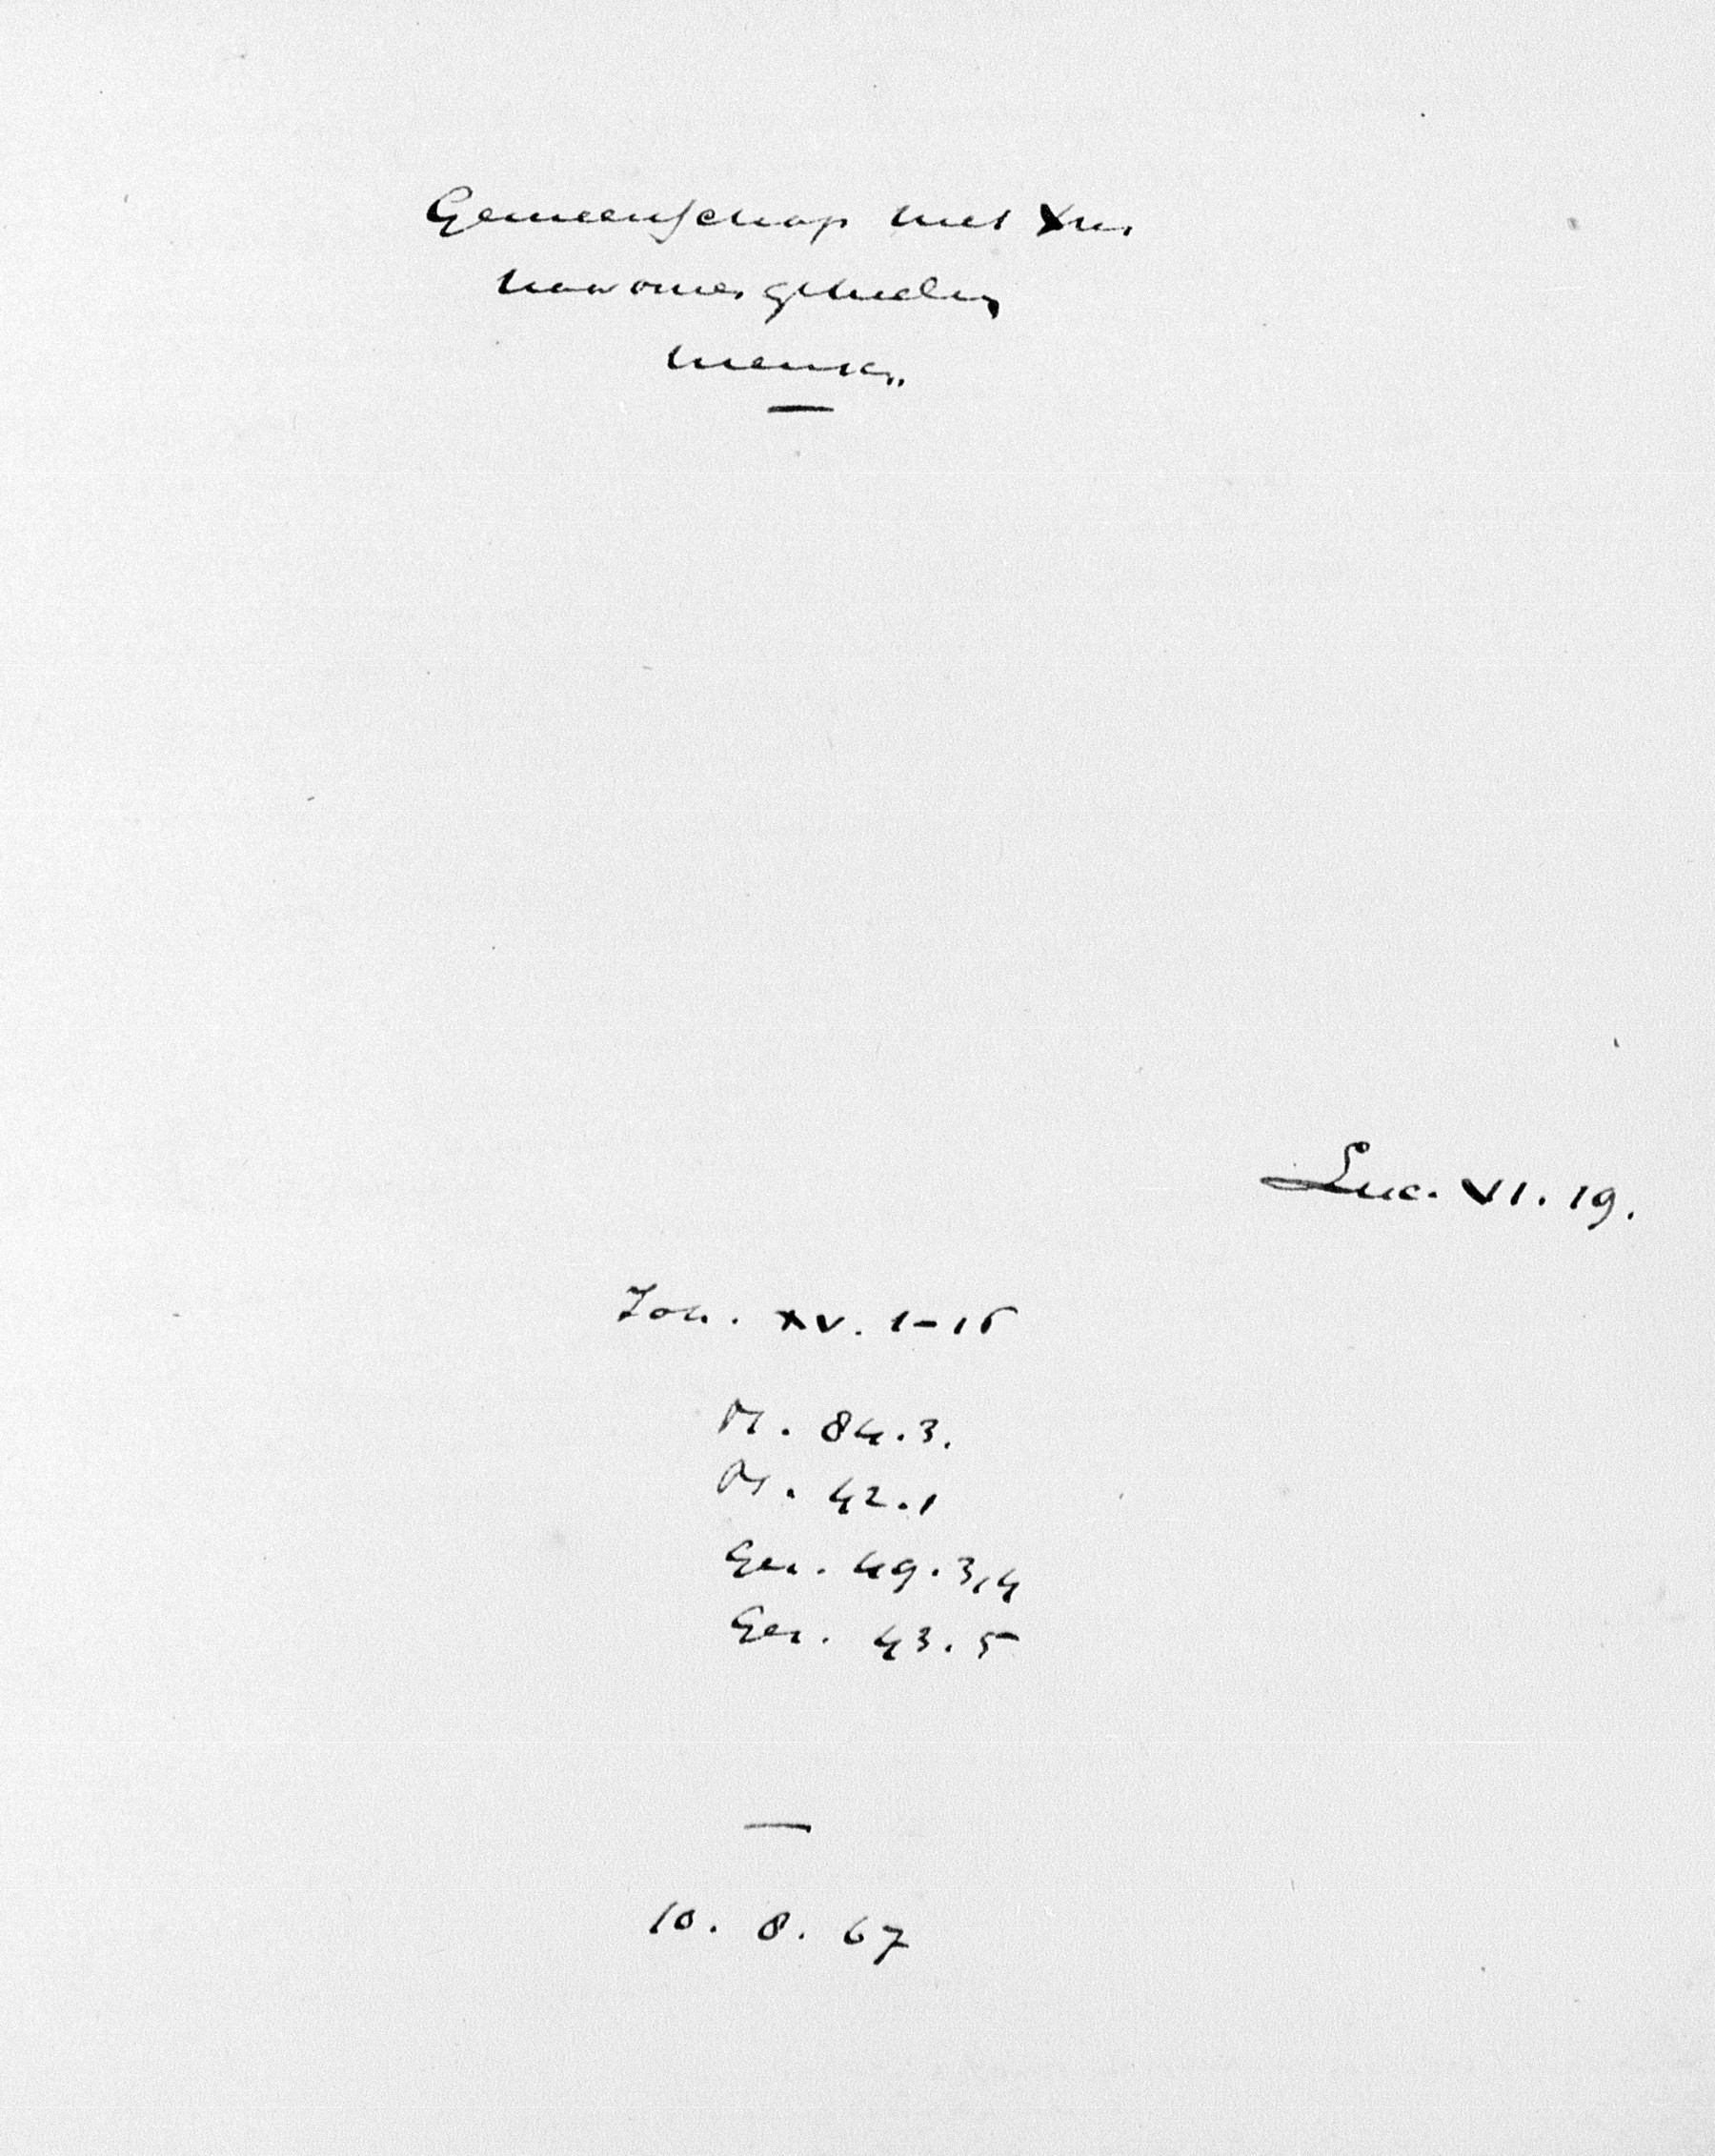 Gemeenschap met Xus
naar onzen geheelen
mensch.
Luc. VI. 19.
Joh. XV. 1-16
Ps. 84.3.
Ps. 42.1
Gez. 49.3,4
Gez. 43.5
10. 8. 67